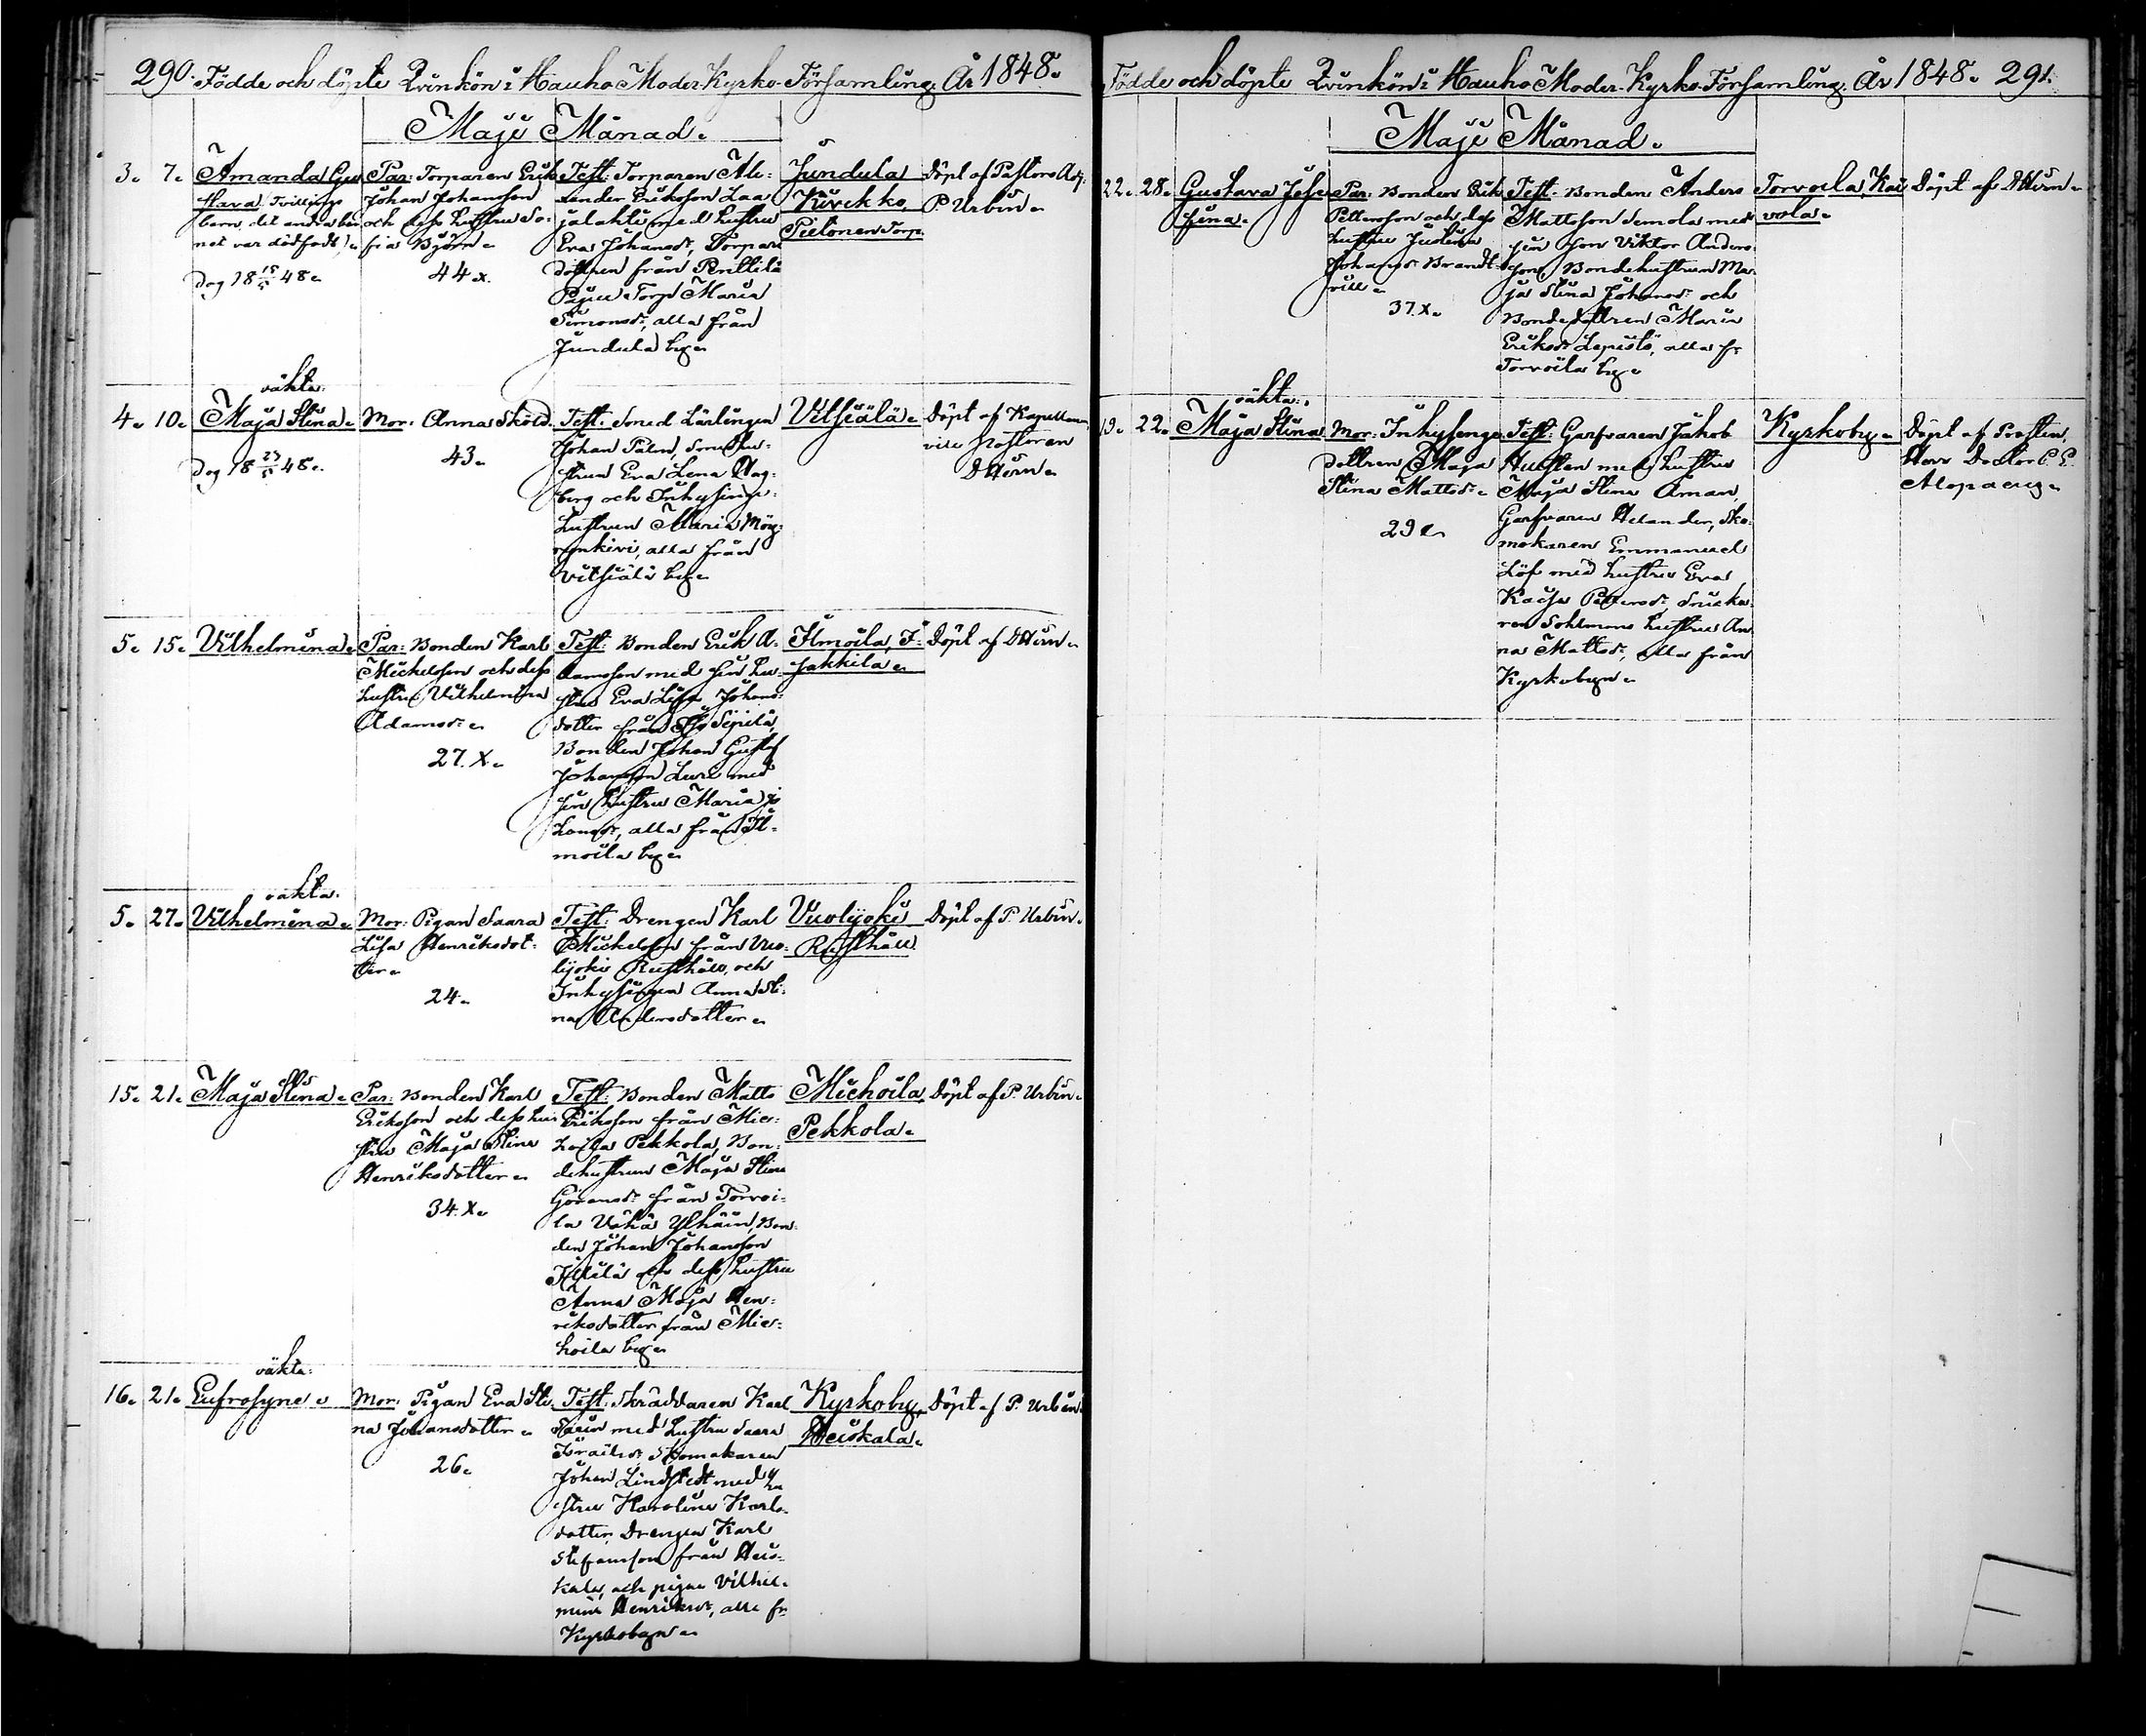 290. Födde och döpte Qvinkön i Hauho Moder Kyrko-Församling. År 1848.
Maji Månad.
3. 7. Amanda Gus
stava. Tvillinge
barn, det andra bar
net var dödfödt.
Dog 18 15/5 48.
Par: Torparen Erik
Johan Johansson
och dess hustru So-
fia Björn.
44 x.
Test: Torparen Ale-
xander Eriksson Laa
jalahti med hustru
Eva Johansdr, Torpare
dottren från Penttilä
Paju Torp Maria
Simonsdr, alla från
Jundula by.
Jundula
Kirckko,
Pietonen Torp.
Döpt af Pastors Adj.
P. Urbin.
4. 10. oäkta.
Maja Stina.
Dog 18 23/5 48.
Mor: Anna Sköld.
43.
Test: Smed Lärlingen
Johan Palm, Smedhu-
strun Eva Lena Hag-
berg och Inhysinge-
hustrun Maria Möy-
rynkivi, alla från
Vitsiälä by.
Vitsiälä.
Döpt af Kapellanen
vice Pastoren
D Hörn.
5. 15. Vilhelmina.
Par: Bonden Karl
Mickelsson och dess
hustru Vilhelmina
Adamsdr.
27. X.
Test: Bonden Erik A-
damsson med sin hu-
stru Eva Lisa Johans-
dotter från Sipilä,
Bonden Johan Gustaf
Johansson Lure med
sin hustru Maria Jo
hansdr, alla från Il-
moila by.
Ilmoila, I-
sakkila.
Döpt af D Hörn.
5. 27. oäkta.
Vilhelmina.
Mor: Pigan Saara
Lisa Henriksdot-
ter.
24.
Test: Drengen Karl
Mickelsson från Vuo-
lijoki Rusthåll, och
Inhysingen Anna Sti-
na Andersdotter.
Vuolijoki
Rusthåll.
Döpt af P. Urbin.
15. 21. Maja Stina.
Par: Bonden Karl
Eriksson och dess hu-
stru Maja Stina
Henriksdotter.
34. X.
Test: Bonden Matts
Eriksson från Mie-
hoila Pekkola, Bon-
dehustrun Maja Stina
Göransdr från Torvoi-
la Vähä Ylhäin, Bon-
den Johan Johansson
och dess hustru
Anna Maja Hen-
riksdotter från Mie-
hoila by.
Miehoila,
Pekkola.
Döpt af P. Urbin.
16. 21. oäkta.
Eufrosyne.
Mor: Pigan Eva Sti-
na Johansdotter.
26.
Test: Skräddaren Karl
med hustru Saara
Israelsdr, Skomakaren
Johan Lindstedt med hu
stru Karolina Karls-
dotter, Drengen Karl
Stefansson från Heis-
kala, och pigan Vilhel-
mina Henriksdr, alla fr.
Kyrkobyn.
Kyrkoby,
Heiskala.
Döpt af P. Urbin.
Födde och döpte Qvinkön i Hauho Moder-Kyrko-Församling. År 1848. 291.
Maji Månad.
22. 28. Gustava Jose
fina.
Par: Bonden Erik
Pettersson och dess
hustru Justina
Johansdr Brandt-
37. X.
Test: Bonden Anders
Mattsson Simola med
sin son Viktor Anders-
son, Bondehustrun Ma-
ja Stina Johansdr och
Bondedottren Maria
Eriksdr Lepistö, alla fr.
Torvoila by.
Torvoila, Kai
vola.
Döpt af D Hörn.
19. 22. oäkta.
Maja Stina
Mor: Inhysinge
dottren Maja
Stina Mattsdr.
29.
Test: Garfvaren Jakob
Hultsten med hustru
Maja Stina Åman,
Garfvaren Helander, Sko-
makaren Emmanuel
Löf med hustru Eva
Kajsa Pettersdr, Snicka-
ren Sohlmans hustru An
na Mattsdr, alla från
Kyrkobyn.
Kyrkoby.
Döpt af Prosten,
Herr Doctor C. E.
Alopaeus.